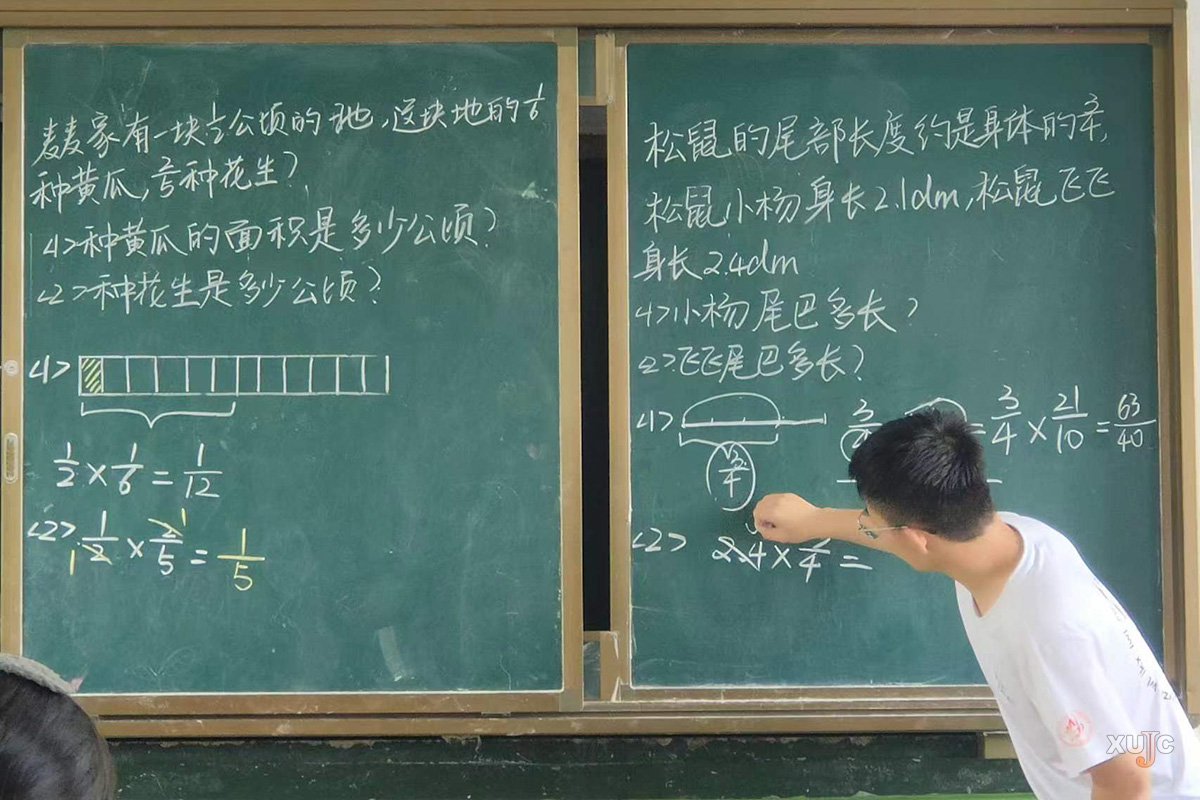 麦麦家有一块1/2公顷的地,这块地的1/6
种黄瓜,2/5种花生?
<1>种黄瓜的面积是多少公顷?
<2>种花生是多少公顷?
<1>
1/2×1/6=1/12
<2> 1/2×2/5=1/5
1 1
松鼠的尾部长度约是身体的3/4,
松鼠小杨身长2.1dm,松鼠飞飞
身长2.4dm
<1>小杨尾巴多长?
<2>飞飞尾巴多长?
<1>
3/4
=3/4×21/10=63/40
<2> 2.4× /4=
XUJC